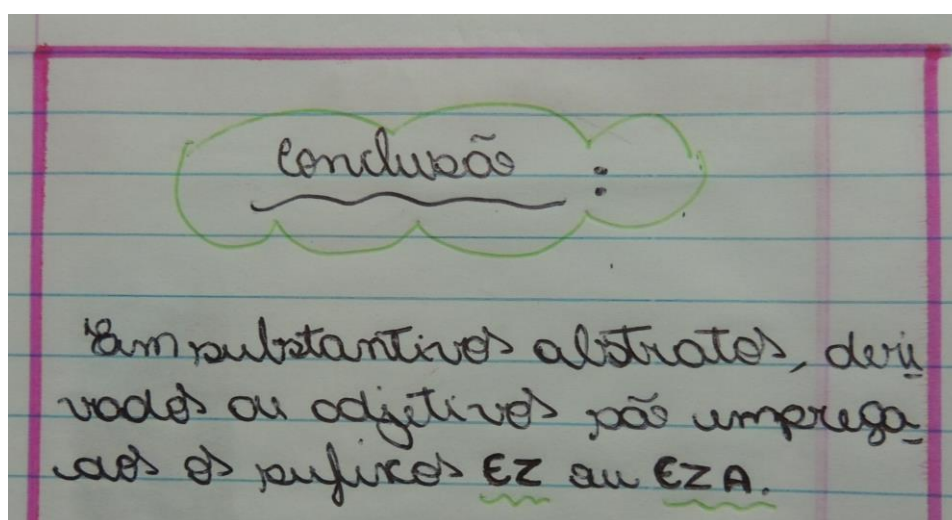 Conclusão :
Em substantivos abstratos, deri
vados ou adjetivos são emprega
dos os sufixos EZ ou EZA.